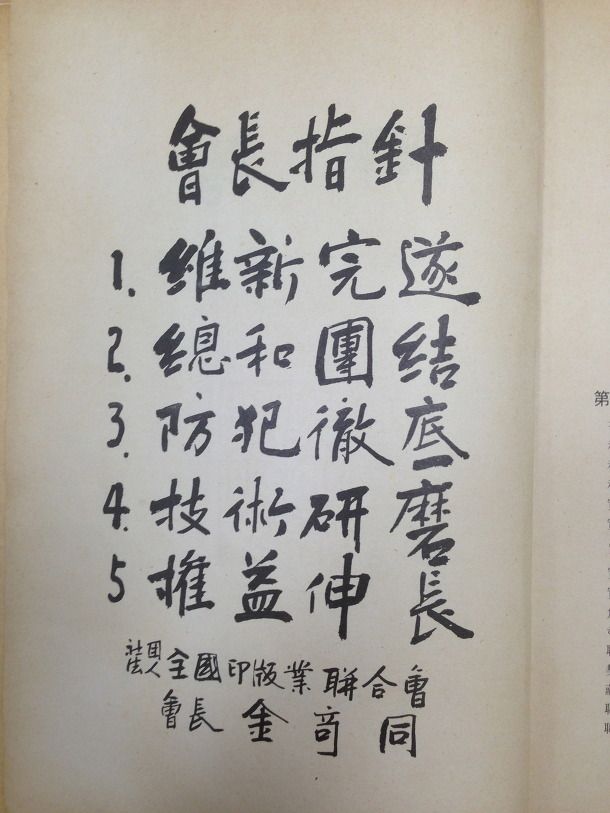 會長指針
1. 維新完遂
2. 總和團結
3. 防犯徹底
4. 技術研磨
5 權益伸長
社団法人 全國印版業聯合會
會長 金竒同
第